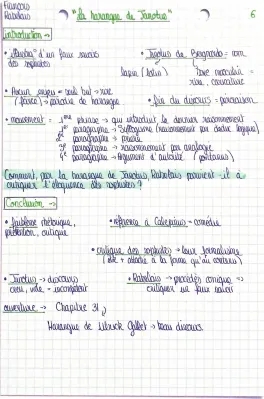 François
Rabelais
"la harangue de Janotus"
6
introduction →
• d'un faux savoir
des sophistes
• Janotus de Bragmardo = nom
lapin (latin)
rire, caricature
• Aucun enjeu = seul but → rire
(farce) → parodie de harangue
• fin du discours → péroraison
• mouvement = 1ère phrase → qui introduit le dernier raisonnement
2e paragraphe → Syllogisme (raisonnement par logique)
paragraphe → preuve
paragraphe → raisonnement par analogie
paragraphe → Argument d'autorité
Comment, par la harangue de Janotus, Rabelais parvient-il à
critiquer l'éloquence des sophistes ?
Conclusion →
• rhétorique,
prétention, critique
• référence à → comédie
• critique des sophistes → leur formalisme
( + attaché à la forme qu'au contenu)
• Janotus → discours
creux, vide = incompétent
• Rabelais → procédés comique =>
critiquer un faux savoir
ouverture → Chapitre 31,
Harangue de Ulrich Gallet → beau discours